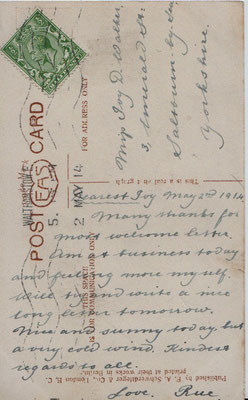 POST CARD
THIS SPACE IS FOR COMMUNICATION ONLY
FOR ADDRESS ONLY
This is a real photograph
Published by E. A. Schwerdtfeger & Co., London E. C.
printed at their works in Berlin.
WALTHAMSTOW
EAS
2 MAY 14
Miss Ivy D Walker,
3, Emerald St.
Saltburn by Sea
Yorkshire.
Dearest Ivy May 2nd 1914
Many thanks for
most welcome letter.
Am at business today
and feeling more myself.
Will try and write a nice
long letter tomorrow.
Nice and sunny today but
a very cold wind. Kindest
regards to all.
Love. Rue.